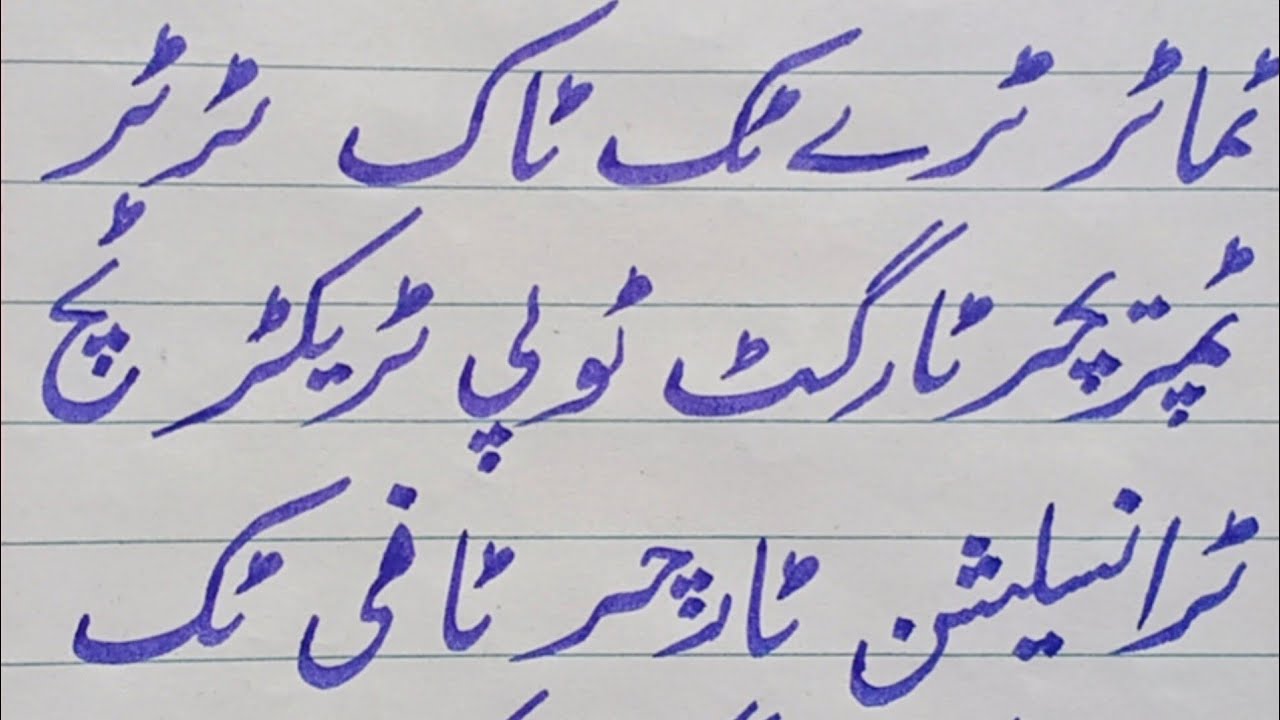 ٹماٹر ٹرے ٹک ٹاک ٹرٹر
ٹمپریچر ٹارگٹ ٹوپی ٹریکٹر ٹچ
ٹرانسلیشن ٹارچر ٹافی ٹک